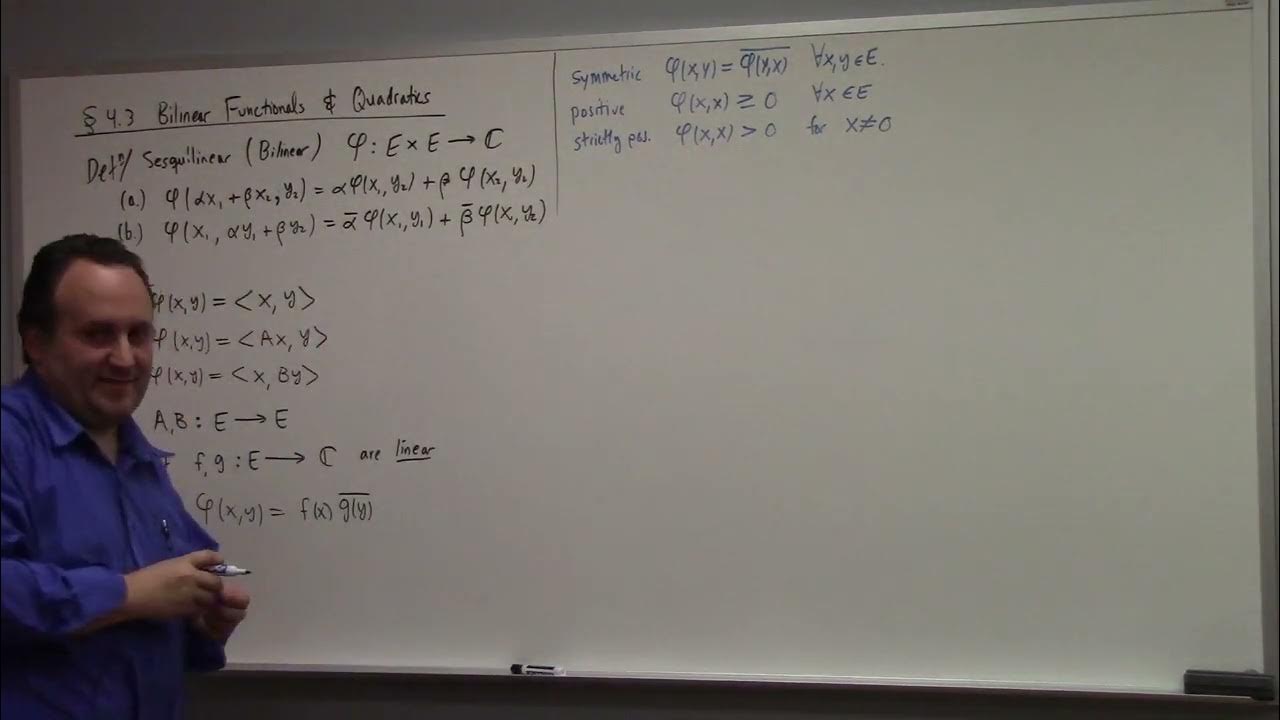 § 4.3 Bilinear Functionals & Quadratics
Defⁿ/ Sesquilinear (Bilinear) φ : E × E → ℂ
(a.) φ(αx₁ + βx₂, y₂) = αφ(x₁, y₂) + β φ(x₂, y₂)
(b.) φ(x₁, αy₁ + βy₂) = ᾱ φ(x₁, y₁) + β̄ φ(x, y₂)
φ(x,y) = <x, y>
φ(x,y) = <Ax, y>
φ(x,y) = <x, By>
A,B : E → E
f, g : E → ℂ are linear
φ(x,y) = f(x) \overline{g(y)}
symmetric φ(x,y) = \overline{φ(y,x)} ∀x,y ∈ E.
positive φ(x,x) ≥ 0 ∀x ∈ E
strictly pos. φ(x,x) > 0 for x ≠ 0